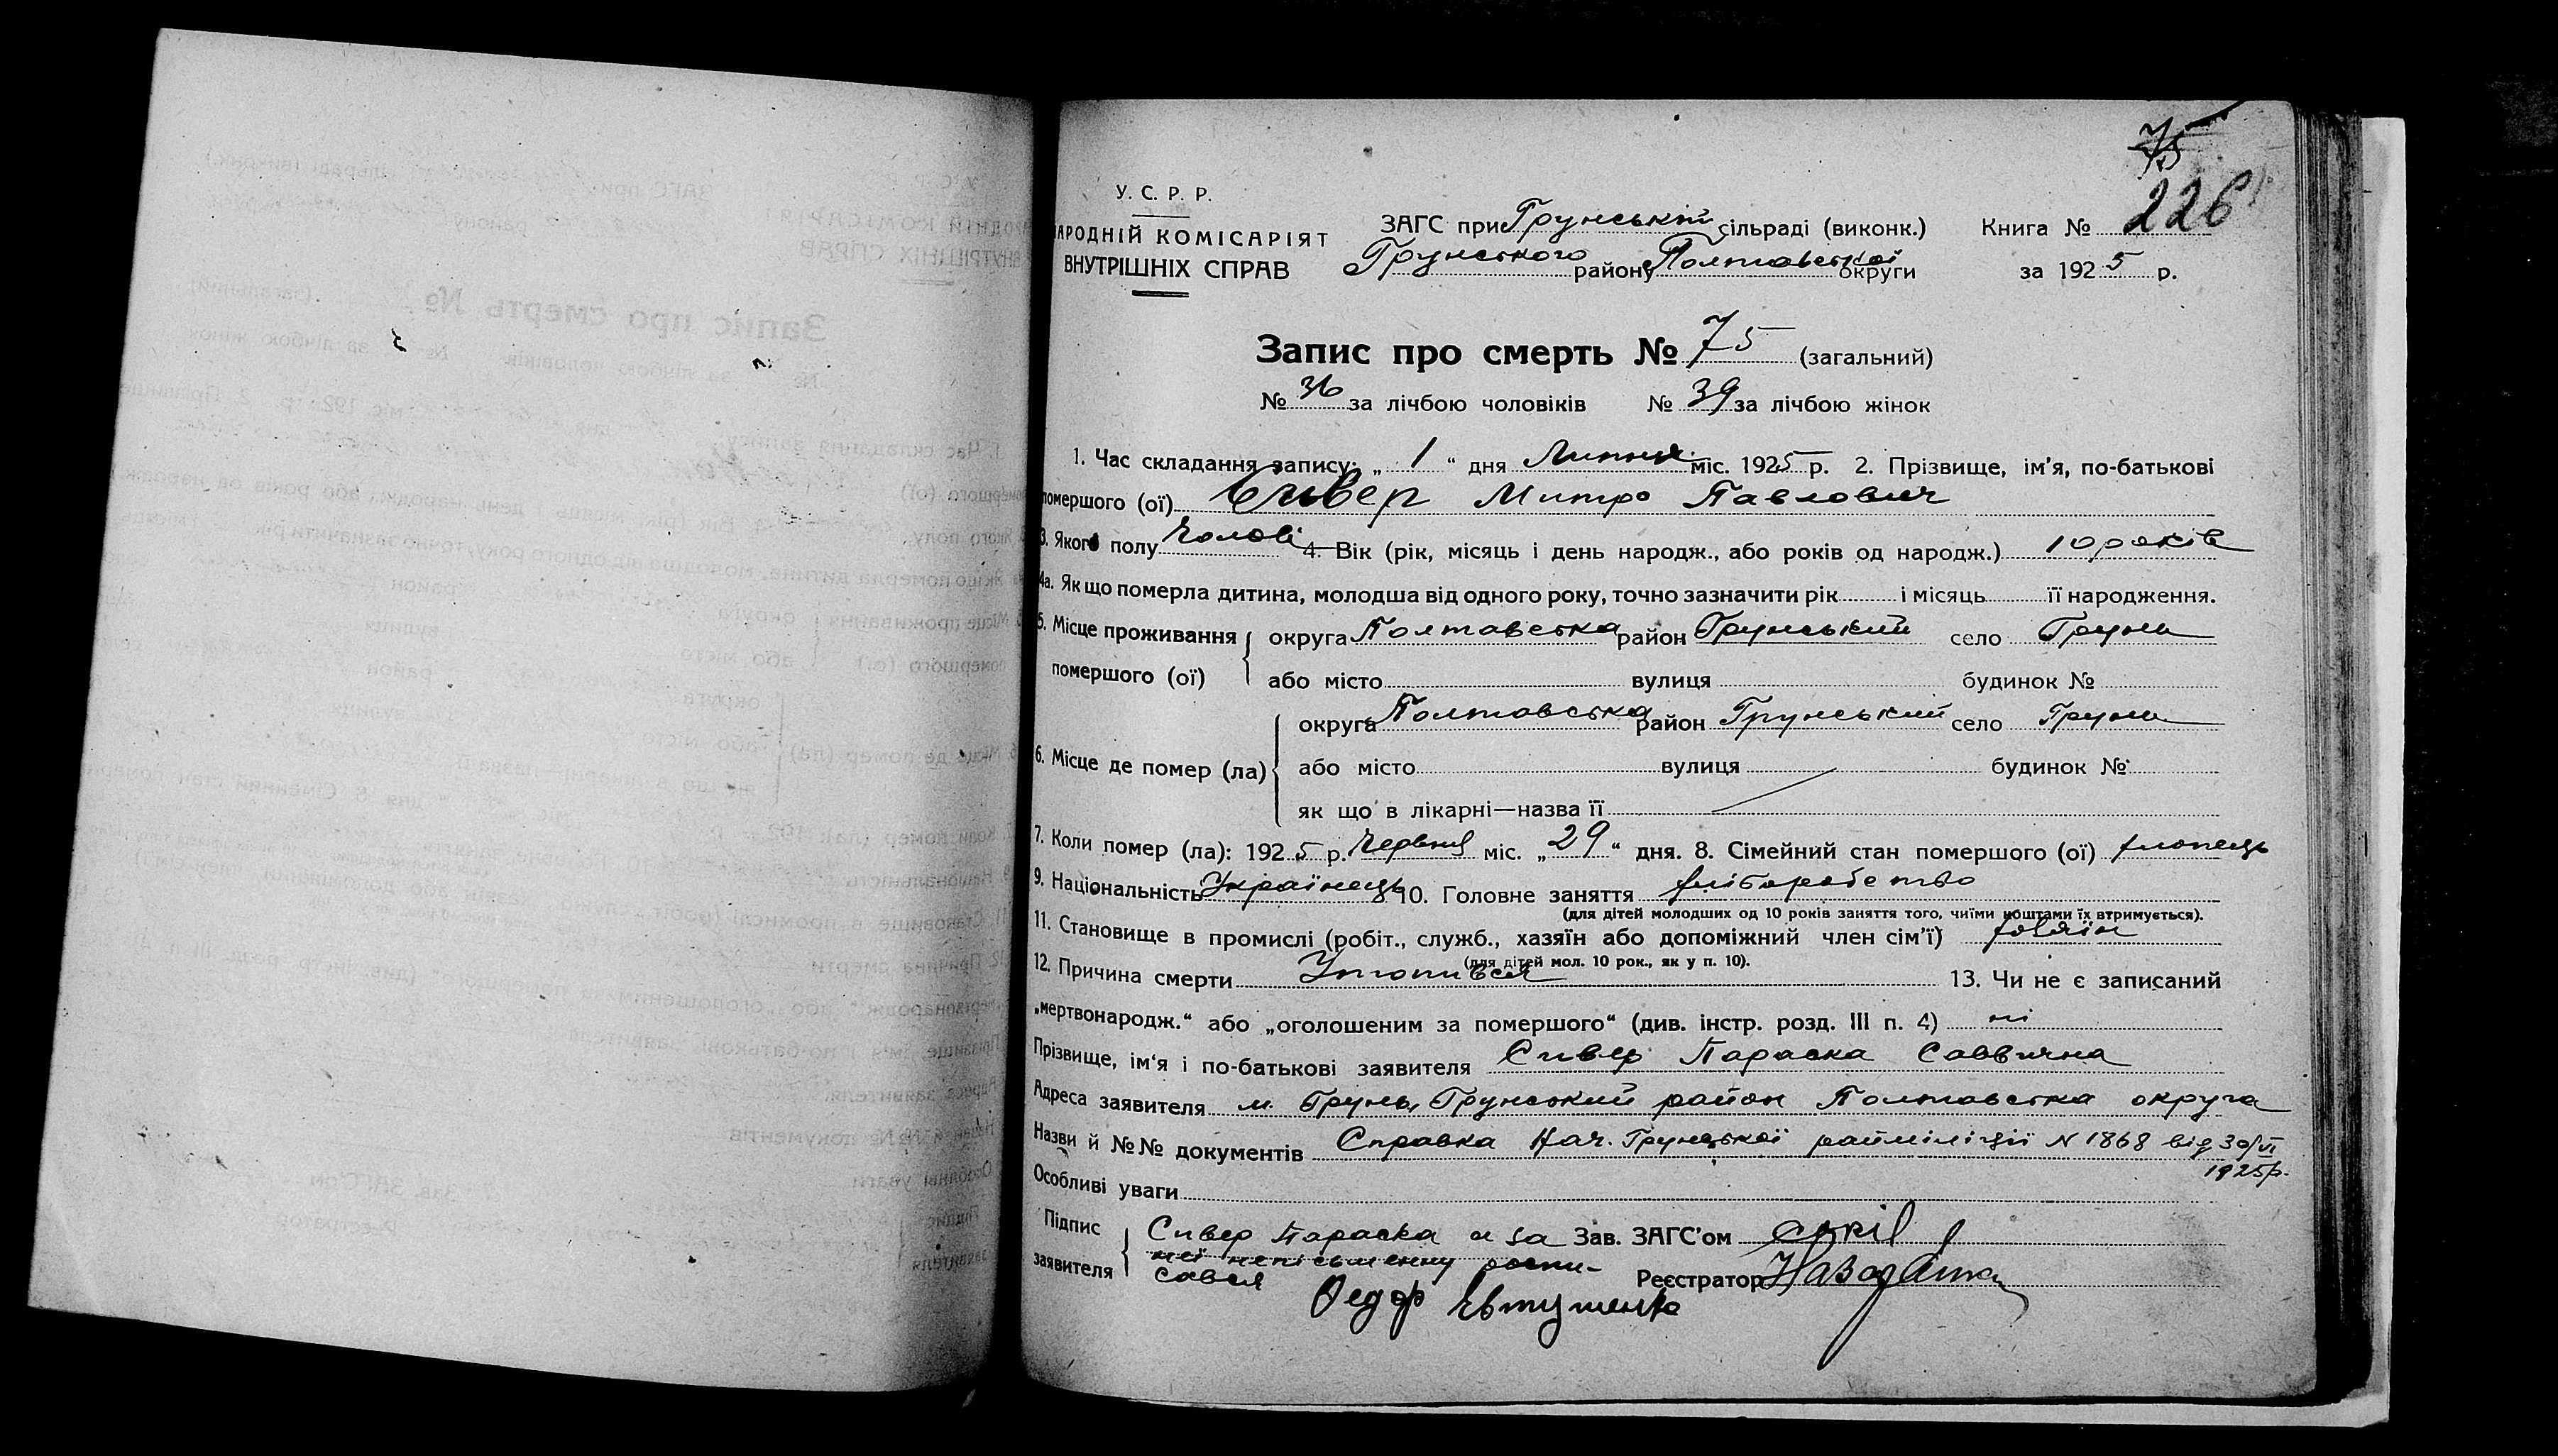 75
226
У. С. Р. Р.
НАРОДНІЙ КОМІСАРІЯТ
ВНУТРІШНІХ СПРАВ
ЗАГС при Грунській сільраді (виконк.)
Грунського району Полтавської округи
Книга №
за 1925 р.
Запис про смерть № 75 (загальний)
№ 36 за лічбою чоловіків № 39 за лічбою жінок
1. Час складання запису: „ 1 “ дня Липня міс. 1925 р. 2. Прізвище, ім'я, по-батькові
помершого (ої) Сивер Митро Павлович
3. Якого полу Чолові 4. Вік (рік, місяць і день народж., або років од народж.) 10 років
4а. Як що померла дитина, молодша від одного року, точно зазначити рік і місяць її народження.
5. Місце проживання помершого (ої) { округа Полтавська район Грунський село Грунь
або місто вулиця будинок №
6. Місце де помер (ла) { округа Полтавська район Грунський село Грунь
або місто вулиця будинок №
як що в лікарні—назва її
7. Коли помер (ла): 1925 р. Червня міс. „ 29 “ дня. 8. Сімейний стан помершого (ої) хлопець
9. Національність Українець 10. Головне заняття хліборобство
(для дітей молодших од 10 років заняття того, чиїми коштами їх втримується).
11. Становище в промислі (робіт., служб., хазяїн або допоміжний член сім'ї) хазяїн
(для дітей мол. 10 рок., як у п. 10).
12. Причина смерти Утопився 13. Чи не є записаний
„мертвонародж.“ або „оголошеним за помершого“ (див. інстр. розд. III п. 4) ні
Прізвище, ім'я і по-батькові заявителя Сивер Параска Саввична
Адреса заявителя м. Грунь, Грунський район Полтавська округа
Назви й №№ документів Справка Нач. Грунської райміліції N 1868 від 30/VI
1925 р.
Особливі уваги
Підпис заявителя { Сивер Параска а за Зав. ЗАГС'ом
неї неписьменну роспи-
сався Реєстратор
Федор Євтушенко